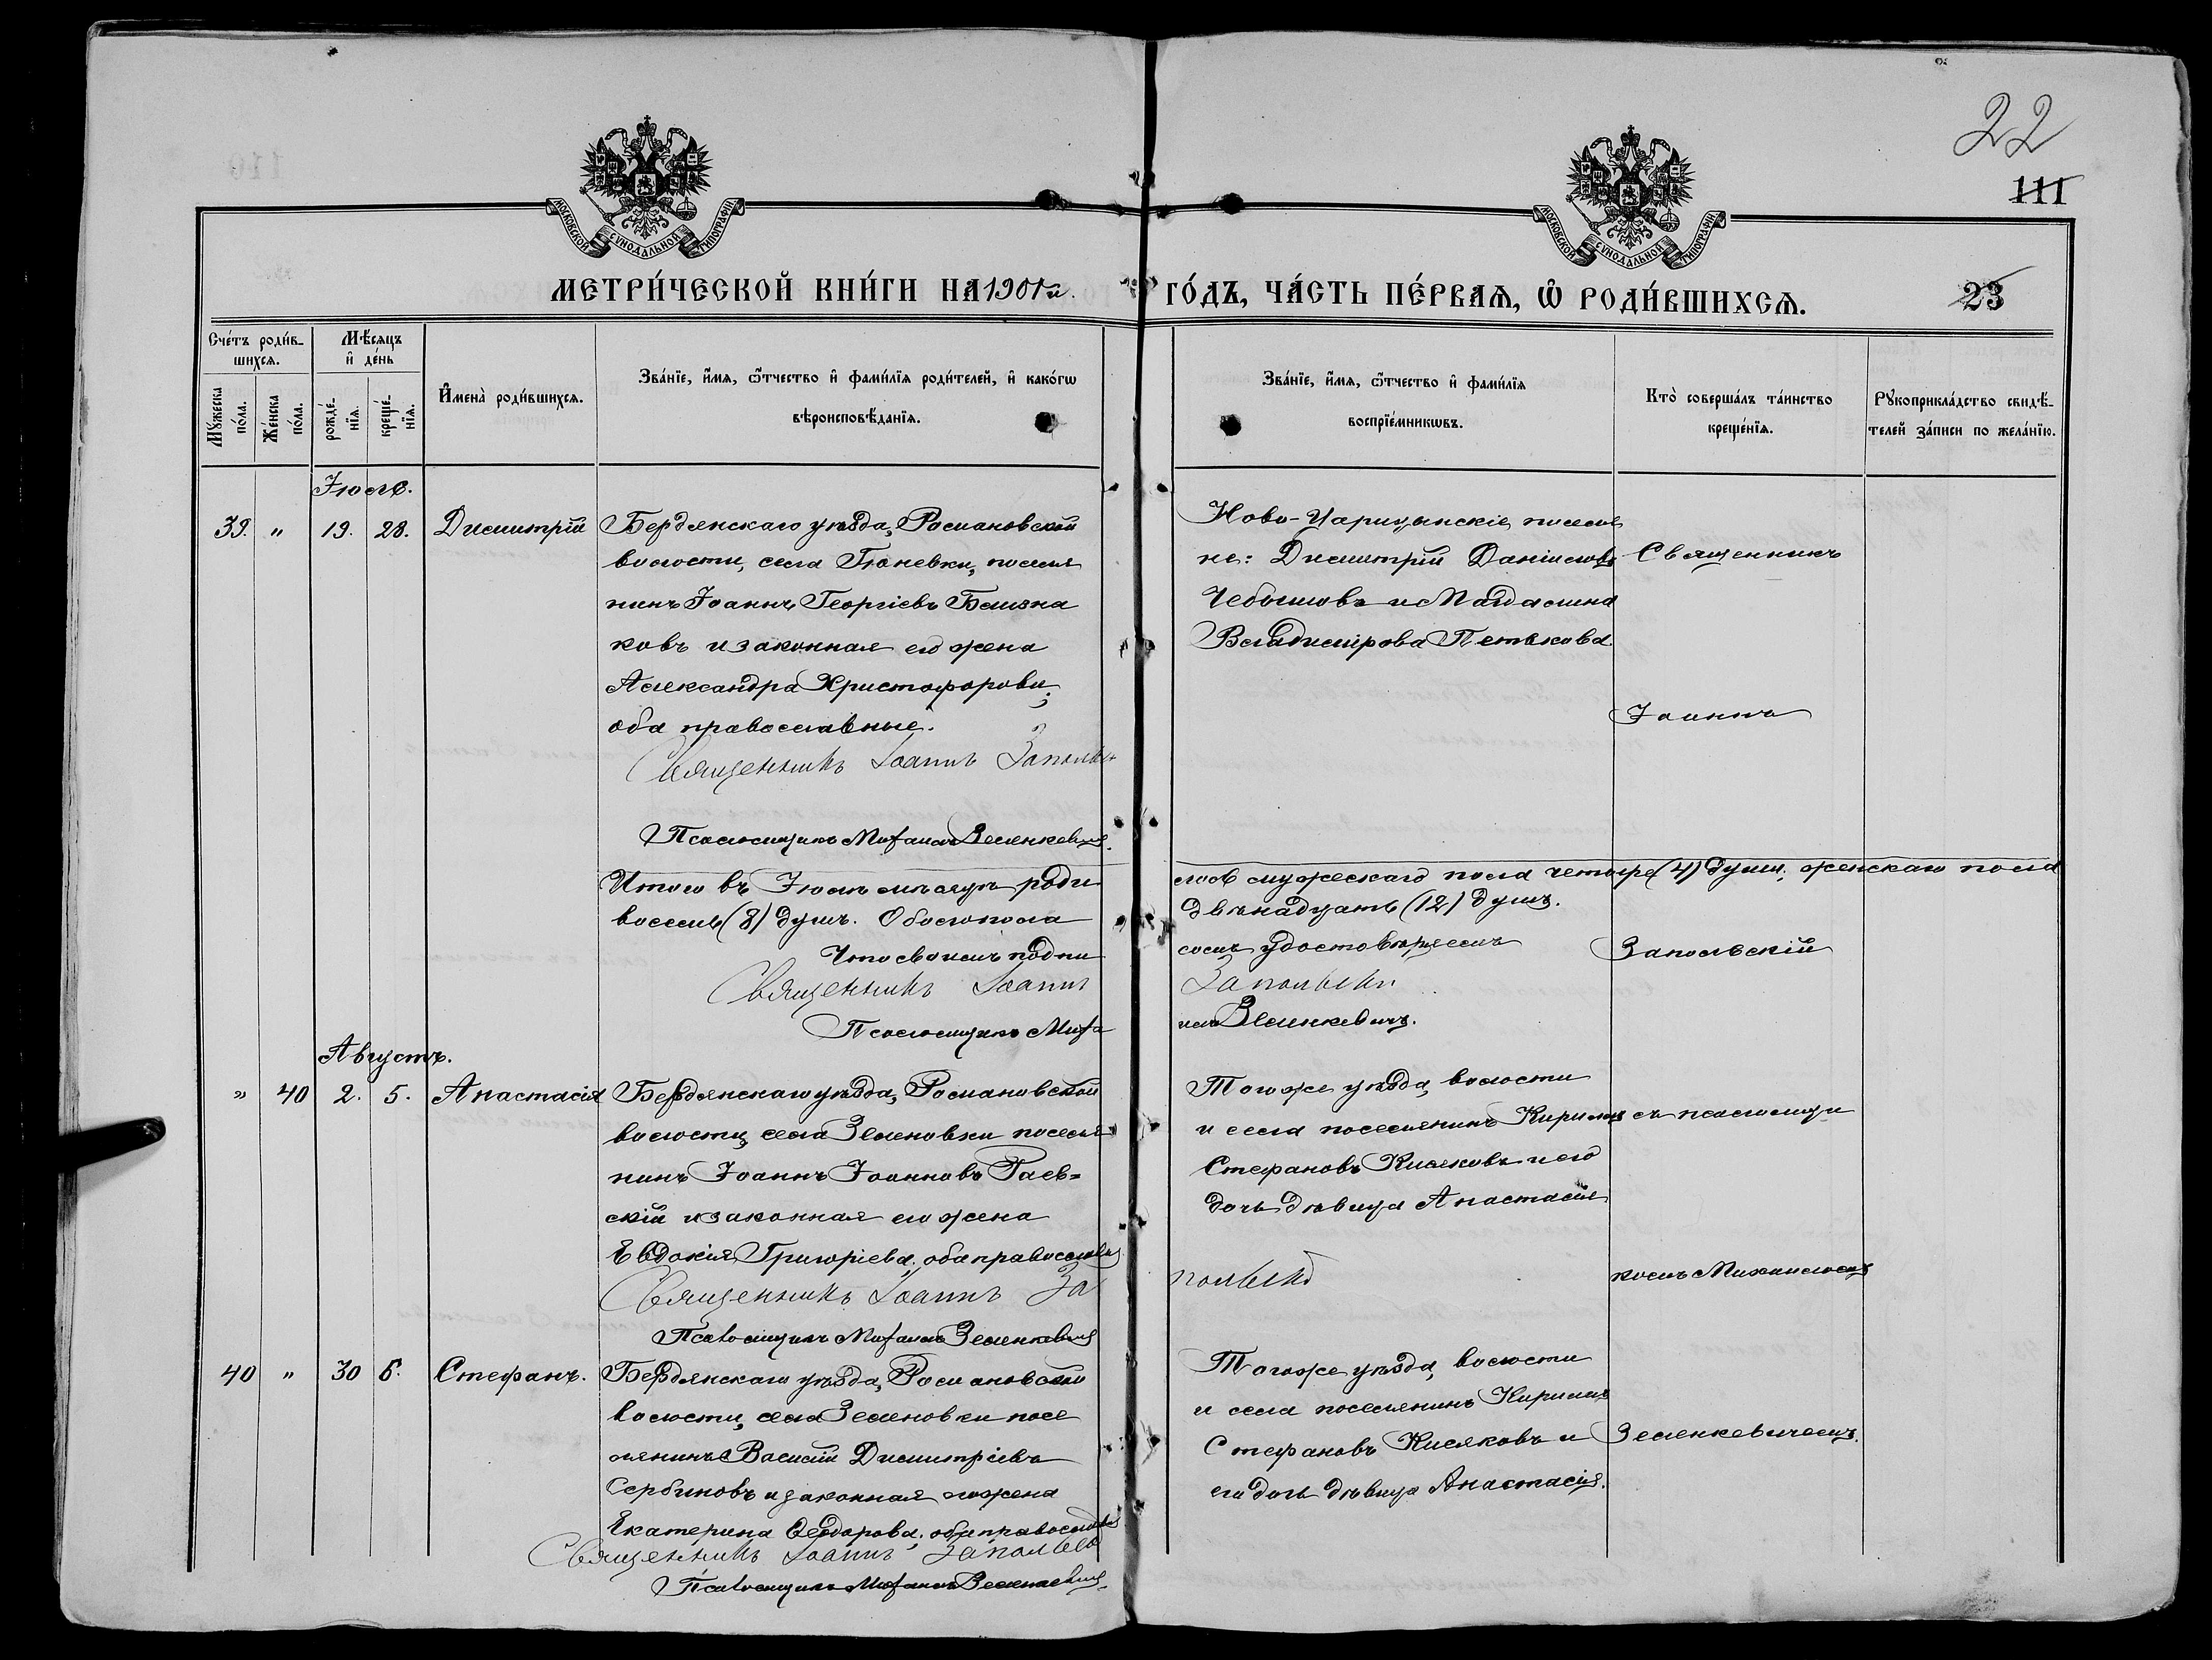 22
111
МОСКОВСКОЙ СѴНОДАЛЬНОЙ ТИПОГРАФІИ
МОСКОВСКОЙ СѴНОДАЛЬНОЙ ТИПОГРАФІИ
МЕТРИ́ЧЕСКОЙ КНИ́ГИ НА 1901й. ГО́ДЪ, ЧА́СТЬ ПЕ́РВАѦ, Ѽ РОДИ́ВШИХСѦ.
23
Сче́тъ роди́в-
шихсѧ.
Мꙋ́жеска по́ла.
Же́нска по́ла.
Мѣ́сѧцъ
и҆ де́нь
рожде́-нїѧ.
креще́-нїѧ.
И҆мена̀ роди́вшихсѧ.
Зва́нїе, и҆́мѧ, ѻ҆́тчество и҆ фамі́лїѧ роди́телей, и҆ како́гѡ
вѣроисповѣ́данїѧ.
Зва́нїе, и҆́мѧ, ѻ҆́тчество и҆ фамі́лїѧ
воспрїе́мникѡвъ.
Кто̀ соверша́лъ та́инство
креще́нїѧ.
Рꙋкоприкла́дство свидѣ́-
телей за́писи по жела́нїю.
Іюль.
39. " 19. 28. Димитрій
Бердянскаго уѣзда, Романовской
волости, села Гюневки, поселя
нинъ Іоаннъ Георгіевъ Близна
ковъ и законная его жена
Александра Христофорова;
оба православные.
Священникъ Іоаннъ Запольск
Псаломщикъ Михаилъ Зеленкевичъ.
Ново-Царицынскіе поселя
не: Димитрій Даніиловъ
Чебышовъ и Магдалина
Владимірова Петкова
Священникъ
Іоаннъ
Итого въ Іюлѣ мѣсяцѣ роди
лось мужескаго пола четыре (4) души, женскаго пола
восемь (8) душъ. Обоего пола
двѣнадцать (12) душъ.
Что своимъ подпи
сомъ удостовѣряемъ
Священникъ Іоаннъ
Запольскій
Псаломщикъ Миха
илъ Зеленкевичъ.
Запольскій
Августъ.
" 40 2. 5. Анастасія
Бердянскаго уѣзда, Романовской
волости, села Зеленовки поселя
нинъ Іоаннъ Іоанновъ Раев=
скій и законная его жена
Евдокія Григоріева; оба православн
Священникъ Іоаннъ За
польскій
Псаломщикъ Михаилъ Зеленкевичъ
Того же уѣзда, волости
и села поселянинъ Кириллъ
Стефановъ Кисяковъ и его
дочь дѣвица Анастасія
съ псаломщи
комъ Михаиломъ
40 " 30 6. Стефанъ.
Бердянскаго уѣзда, Романовской
волости, села Зеленовки посе
лянинъ Василій Димитріевъ
Сербиновъ и законная его жена
Екатерина Ѳеодорова; оба православн
Священникъ Іоаннъ Запольскій
Псаломщикъ Михаилъ Зеленкевичъ.
Того же уѣзда, волости
и села поселянинъ Кириллъ
Стефановъ Кисяковъ и
его дочь дѣвица Анастасія.
Зеленкевичемъ.